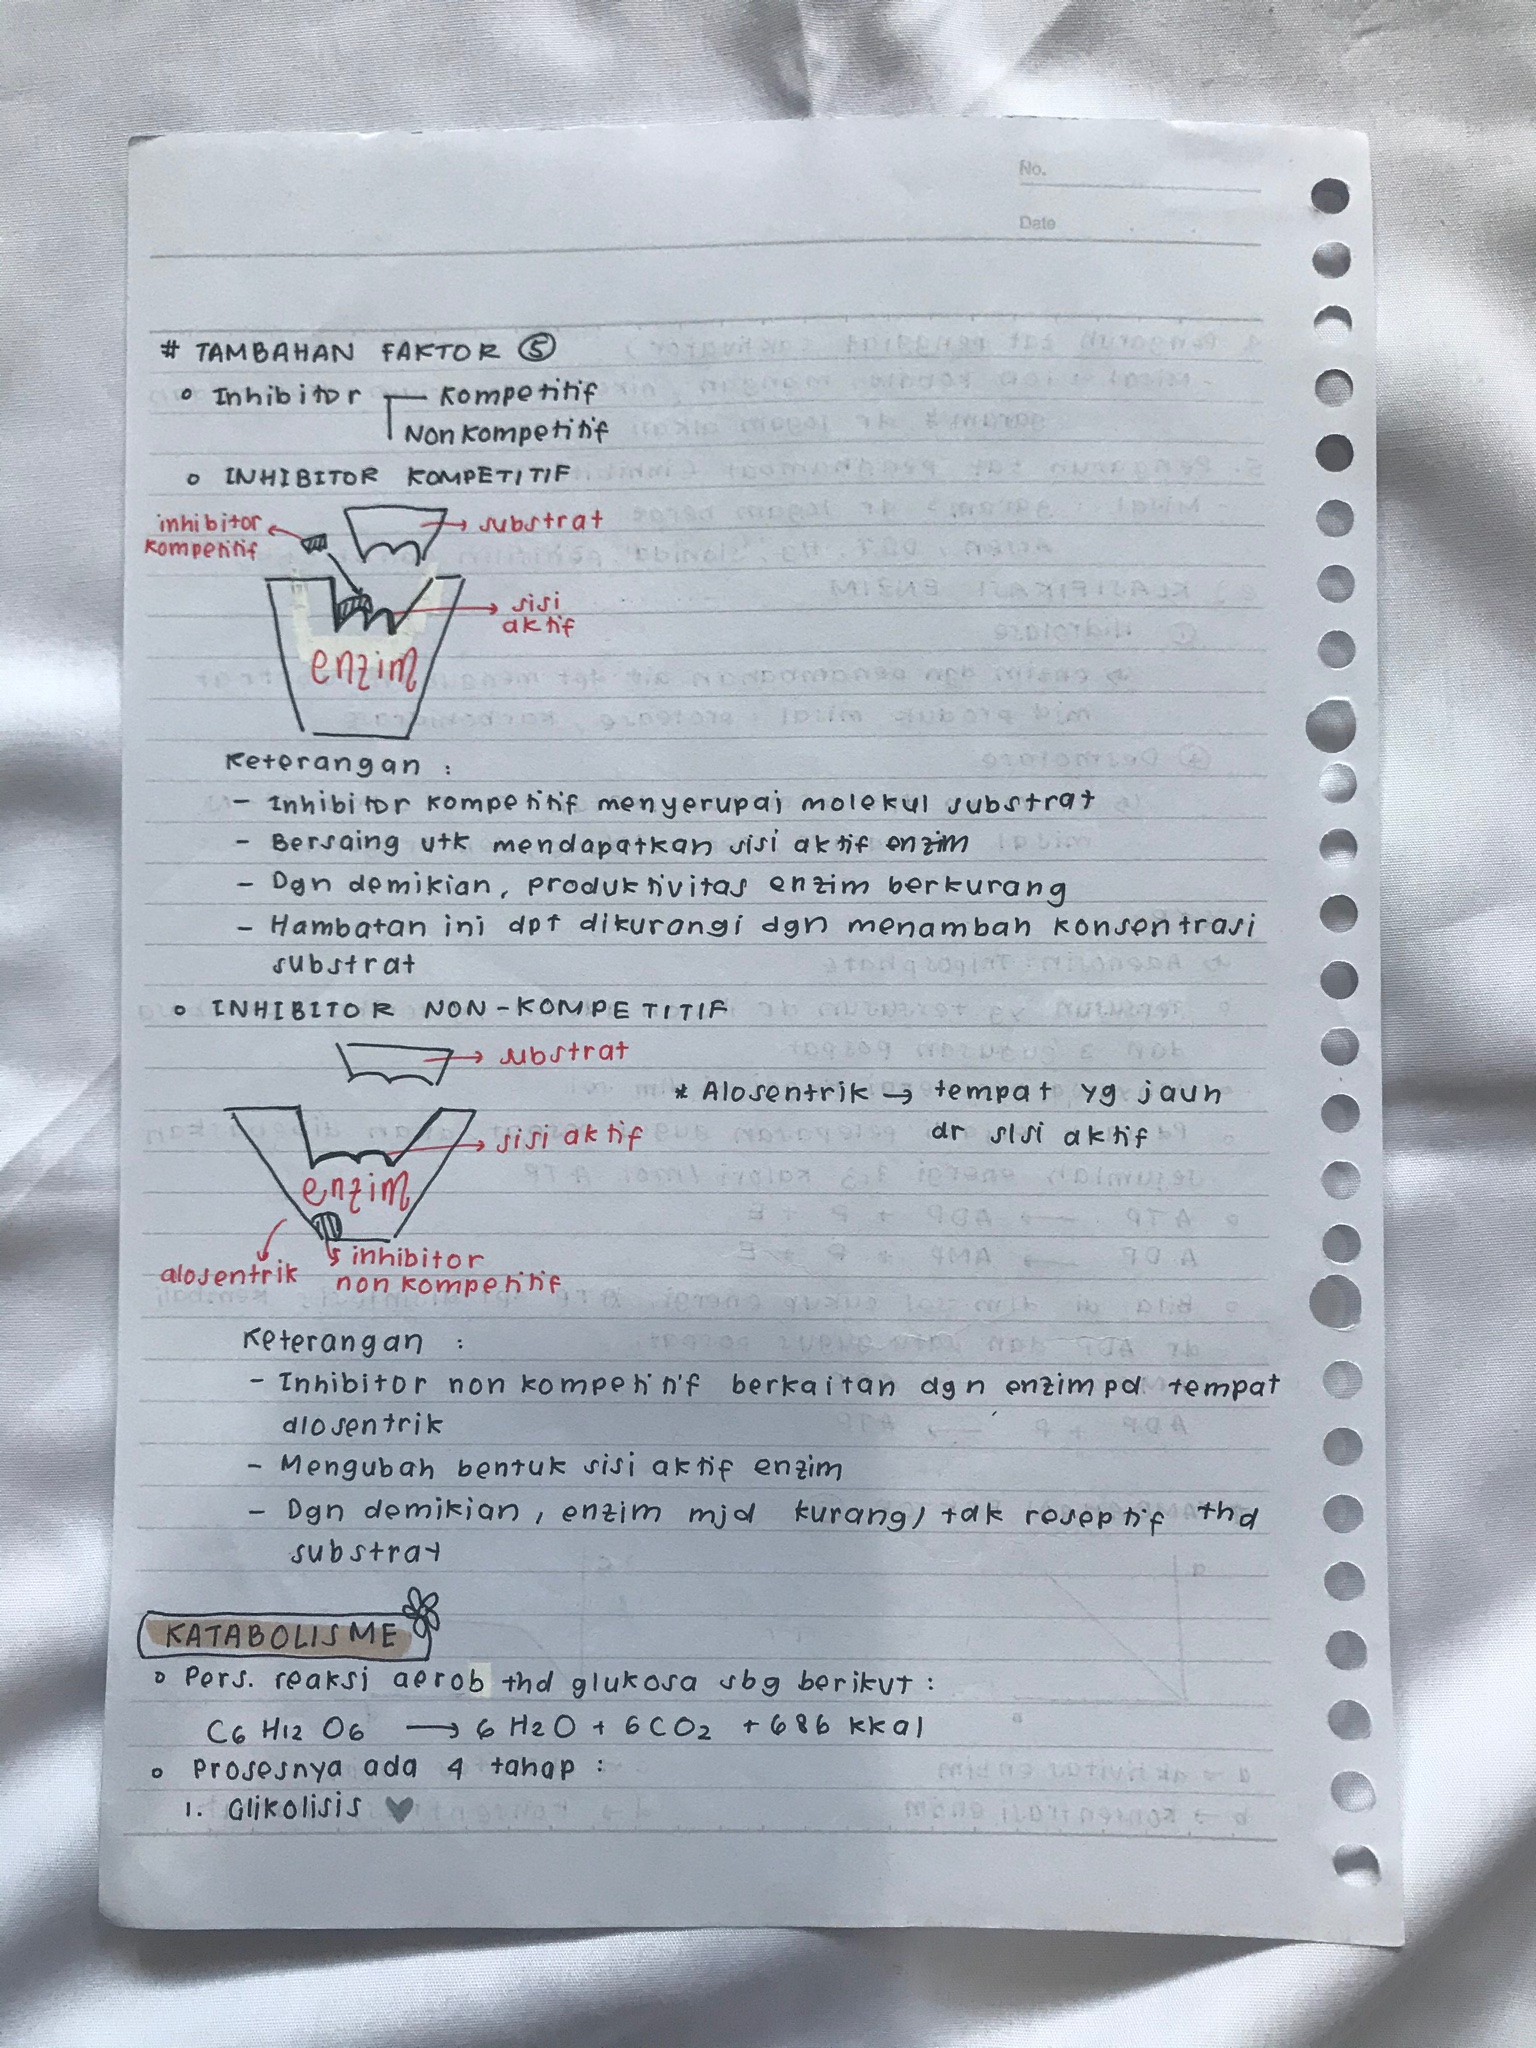 No.
Date
# TAMBAHAN FAKTOR ⑤
o Inhibitor Kompetitif
Non Kompetitif
o INHIBITOR KOMPETITIF
inhibitor
kompetitif
substrat
sisi
aktif
enzim
Keterangan :
- Inhibitor kompetitif menyerupai molekul substrat
- Bersaing utk mendapatkan sisi aktif enzim
- Dgn demikian, produktivitas enzim berkurang
- Hambatan ini dpt dikurangi dgn menambah konsentrasi
substrat
o INHIBITOR NON-KOMPETITIF
→ substrat
* Alosentrik → tempat yg jauh
dr sisi aktif
→ sisi aktif
enzim
alosentrik
inhibitor
non kompetitif
Keterangan :
- Inhibitor non kompetitif berkaitan dgn enzim pd tempat
alosentrik
- Mengubah bentuk sisi aktif enzim
- Dgn demikian, enzim mjd kurang/tak reseptif thd
substrat
KATABOLISME
o Pers. reaksi aerob thd glukosa sbg berikut :
C6 H12 O6 → 6 H2O + 6CO2 + 686 kkal
o Prosesnya ada 4 tahap :
1. Glikolisis ♥